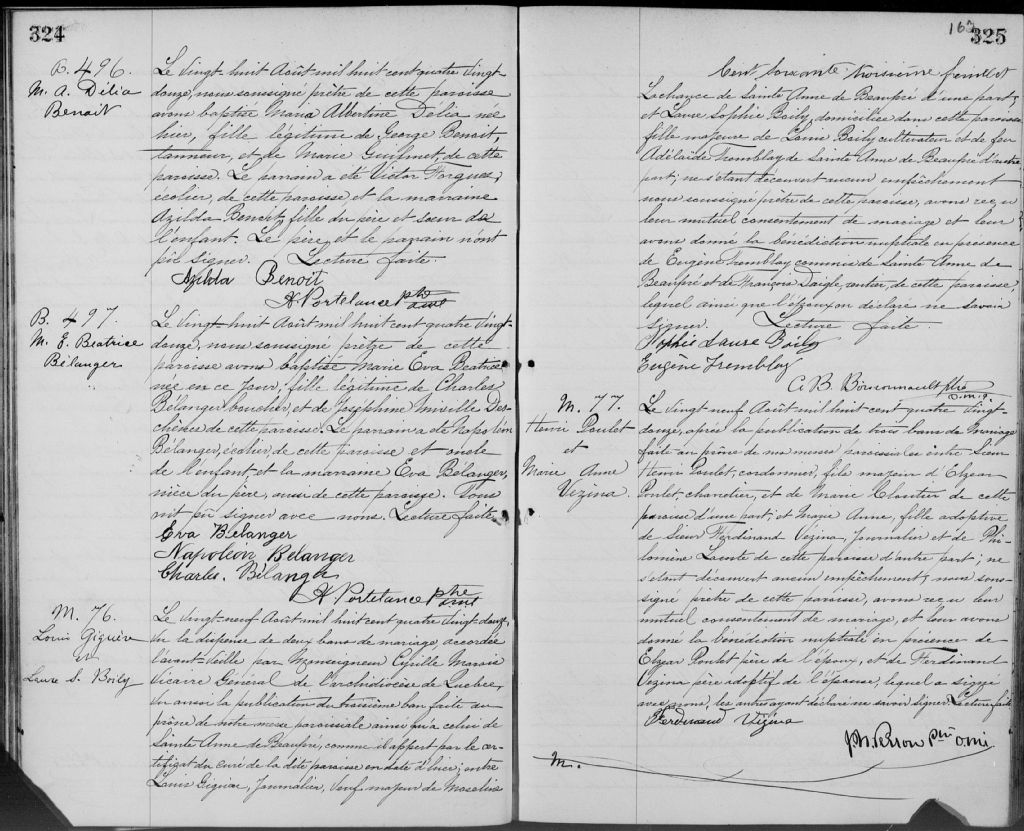 324
B. 496.
M. A. Délia
Benoit
Le vingt-huit Août mil huit cent quatre vingt-
douze, nous soussigné prêtre de cette paroisse
avons baptisé Maria Albertine Délia née
hier, fille légitime de George Benoit,
tanneur, et de Marie Guilmet, de cette
paroisse. Le parrain a été Victor Forgues,
écolier, de cette paroisse, et la marraine
Azilda Benoit, fille du père et sœur de
l'enfant. Le père et le parrain n'ont
pû signer. Lecture faite
Azilda Benoit
A Portelance ptre
omi
B. 497.
M. E. Béatrice
Bélanger
Le Vingt-huit Août mil huit cent quatre Vingt-
douze, nous soussigné prêtre de cette
paroisse avons baptisé Marie Eva Béatrice
née en ce jour, fille légitime de Charles
Bélanger boucher, et de Joséphine Miville Des-
chênes de cette paroisse. Le parrain a été Napoléon
Bélanger, écolier, de cette paroisse et oncle
de l'enfant et la marraine Eva Bélanger,
nièce du père, aussi de cette paroisse. Tous
ont pû signer avec nous. Lecture faite
Eva Bélanger
Napoléon Bélanger
Charles. Bélanger
A Portelance ptre
omi
M. 76.
Louis Giguère
et
Laure S. Boily
Le Vingt-neuf Août mil huit cent quatre Vingt-douze,
Vu la dispense de deux bans de mariage, accordée
l'avant-veille par Monseigneur Cyrille Marois
Vicaire Général de l'archidiocèse de Quebec,
Vu aussi la publication du troisième ban faite au
prône de notre messe paroissiale ainsi qu'à celui de
Sainte Anne de Beaupré, comme il appert par le cer-
tificat du curé de la dite paroisse en date d'hier, entre
Louis Giguère, Journalier, Veuf majeur de Moseline
163
325
Cent soixante troisième feuillet
Lachance de Sainte Anne de Beaupré d'une part,
et Laure Sophie Boily, domiciliée dans cette paroisse
fille majeure de Louis Boily cultivateur et de feu
Adélaïde Tremblay de Sainte Anne de Beaupré d'autre
part; ne s'étant découvert aucun empêchement
nous soussigné prêtre de cette paroisse, avons reçu
leur mutuel consentement de mariage et leur
avons donné la bénédiction nuptiale en présence
de Eugène Tremblay commis de Sainte Anne de
Beaupré et de François Daigle, rentier, de cette paroisse
lequel ainsi que l'époux on déclaré ne savoir
signer. Lecture faite.
Sophie Laure Boily
Eugène Tremblay
ptre
o.m.i.
M. 77.
Henri Poulet
et
Marie Anne
Vezina
Le Vingt neuf Août mil huit cent quatre Vingt
douze, après la publication de trois bans de mariage
faite au prône de nos messes paroissiales entre Sieur
Henri Poulet cordonnier, fils majeur d'Elzear
Poulet, charretier, et de Marie Cloutier de cette
paroisse d'une part, et Marie Anne, fille adoptive
de Sieur Ferdinand Vezina, Journalier et de Phi-
lomène Lainté de cette paroisse d'autre part; ne
s'étant découvert aucun empêchement, nous sous-
signé prêtre de cette paroisse, avons reçu leur
mutuel consentement de mariage, et leur avons
donné la bénédiction nuptiale en présence de
Elzear Poulet père de l'époux, et de Ferdinand
Vezina père adoptif de l'épouse, lequel a signé
avec nous, les autres ayant déclaré ne savoir signer. Lecture faite
Ferdinand Vezina
ptre o.m.i
M.